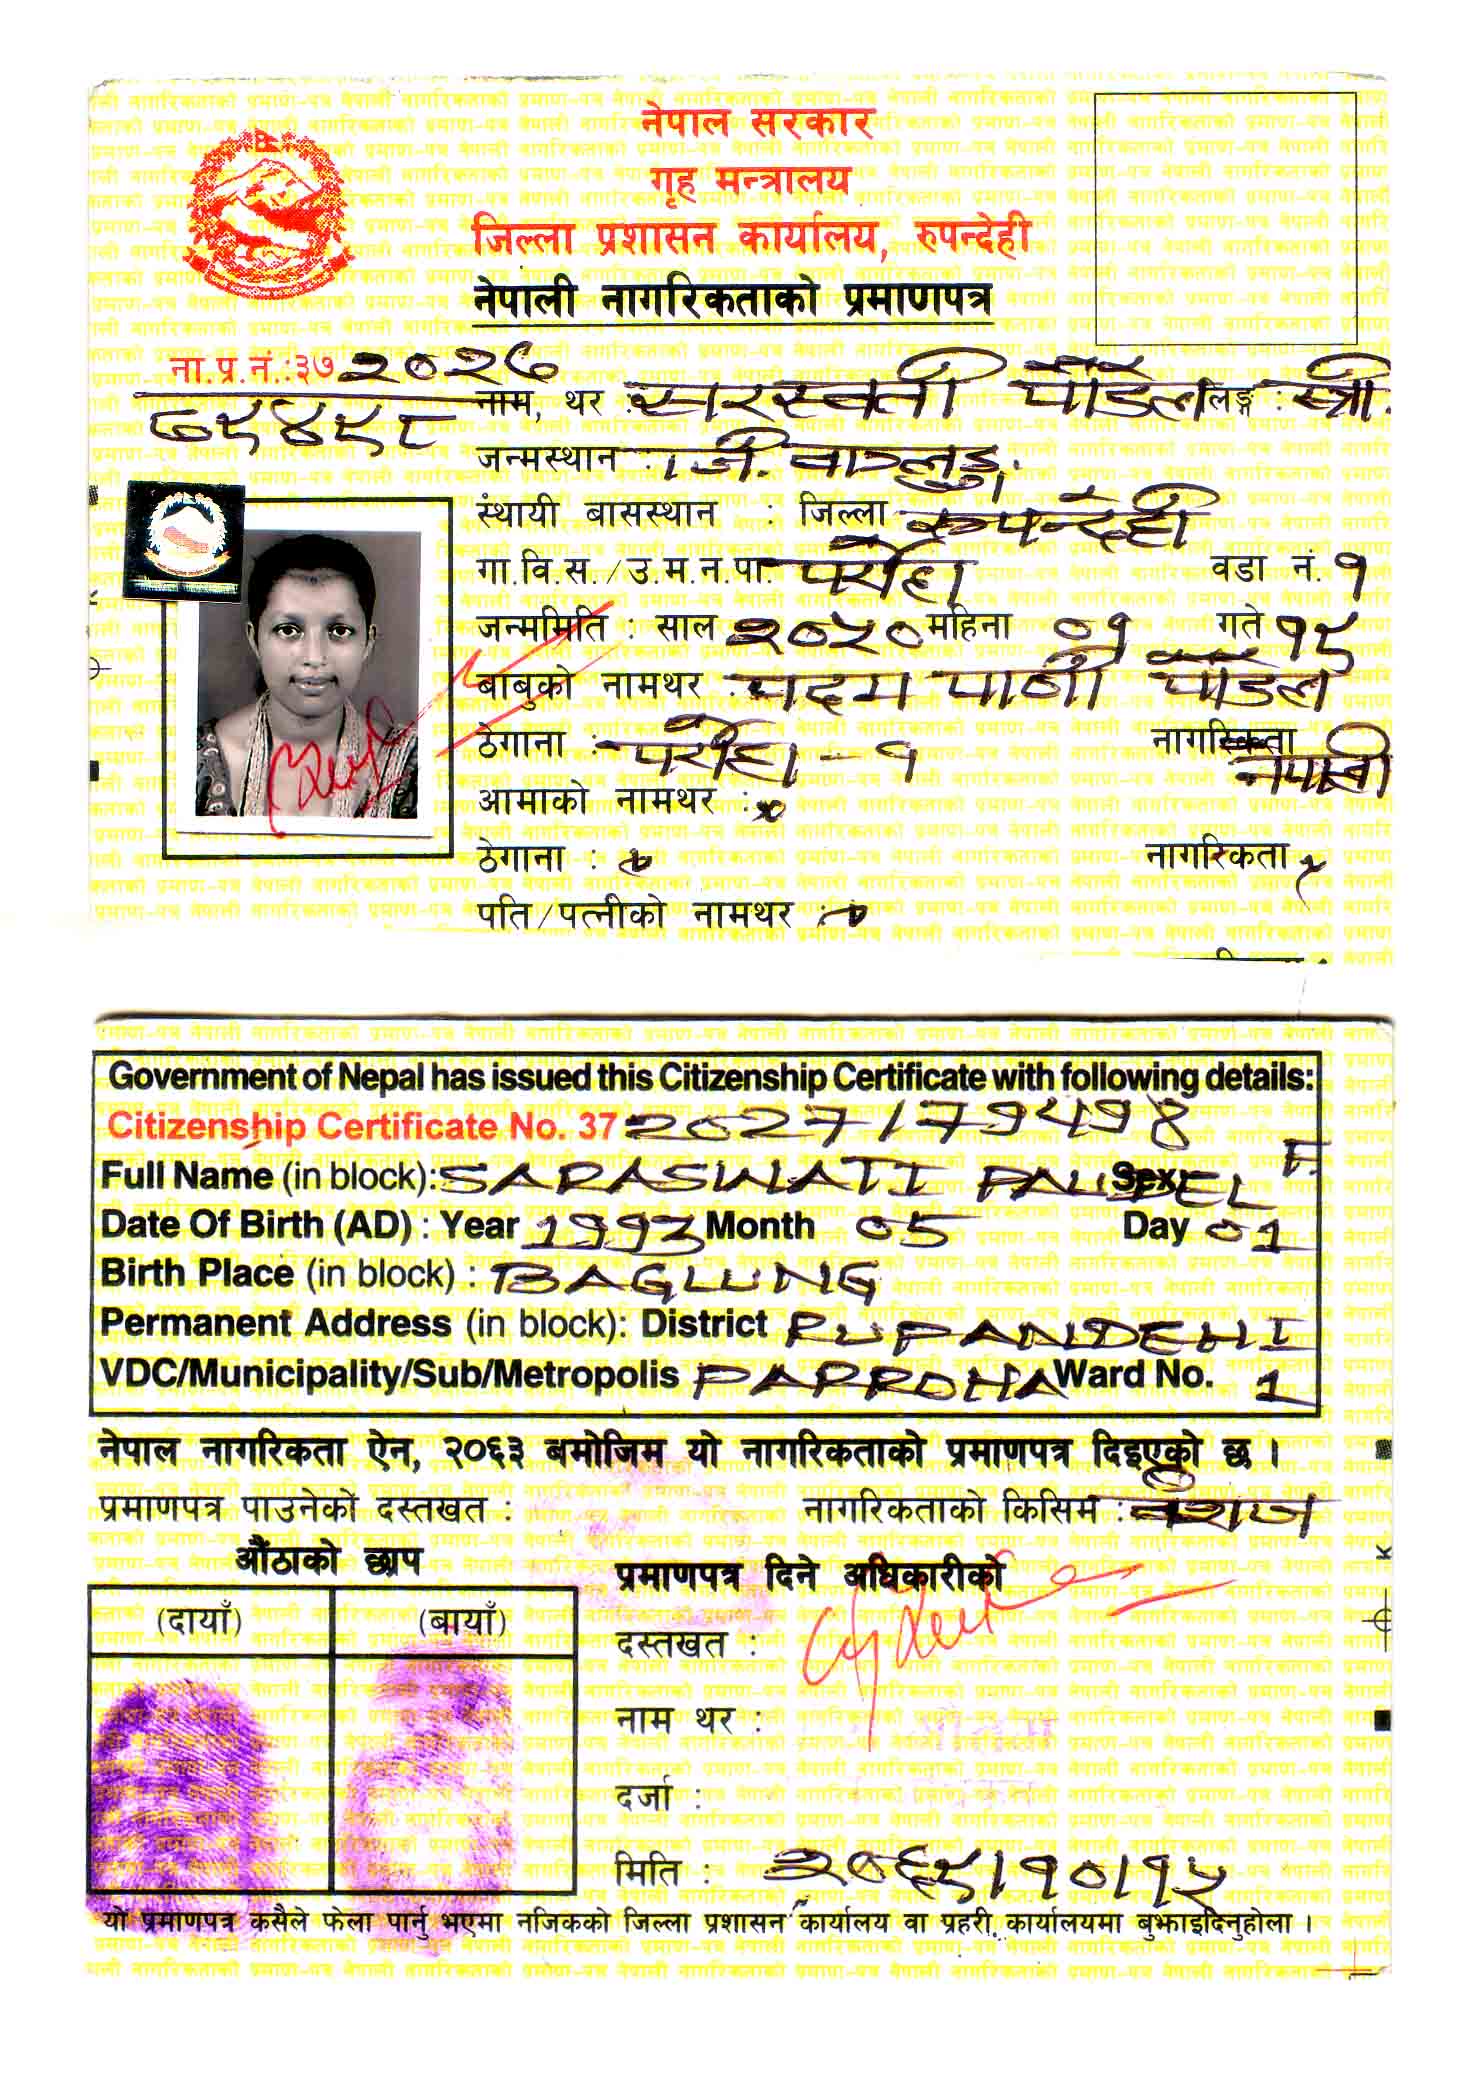 नेपाल सरकार
गृह मन्त्रालय
जिल्ला प्रशासन कार्यालय, रुपन्देही
नेपाली नागरिकताको प्रमाणपत्र
ना.प्र.नं.:३७ २०२७
७९४९८
नाम, थर : सरस्वती पौडेल लिङ्ग : स्त्री.
जन्मस्थान : जि. बाग्लुङ्ग
स्थायी बासस्थान : जिल्ला रुपन्देही
गा.वि.स./उ.म.न.पा. पर्रोहा वडा नं. १
जन्ममिति : साल २०५० महिना ०१ गते १९
बाबुको नामथर : पदम पाणी पौडेल
ठेगाना : पर्रोहा - १ नागरिकता नेपाली
आमाको नामथर :
ठेगाना : नागरिकता
पति/पत्नीको नामथर :
Government of Nepal has issued this Citizenship Certificate with following details:
Citizenship Certificate No. 37 2027/79498
Full Name (in block): SARASWATI PAUDEL Sex F.
Date Of Birth (AD) : Year 1993 Month 05 Day 01
Birth Place (in block) : BAGLUNG
Permanent Address (in block): District RUPANDEHI
VDC/Municipality/Sub/Metropolis PARROHA Ward No. 1
नेपाल नागरिकता ऐन, २०६३ बमोजिम यो नागरिकताको प्रमाणपत्र दिइएको छ ।
प्रमाणपत्र पाउनेको दस्तखत : नागरिकताको किसिम : वंशज
औंठाको छाप
प्रमाणपत्र दिने अधिकारीको
(दायाँ) (बायाँ)
दस्तखत :
नाम थर :
दर्जा :
मिति : २०६९।१०।१५
यो प्रमाणपत्र कसैले फेला पार्नु भएमा नजिकको जिल्ला प्रशासन कार्यालय वा प्रहरी कार्यालयमा बुझाइदिनुहोला ।